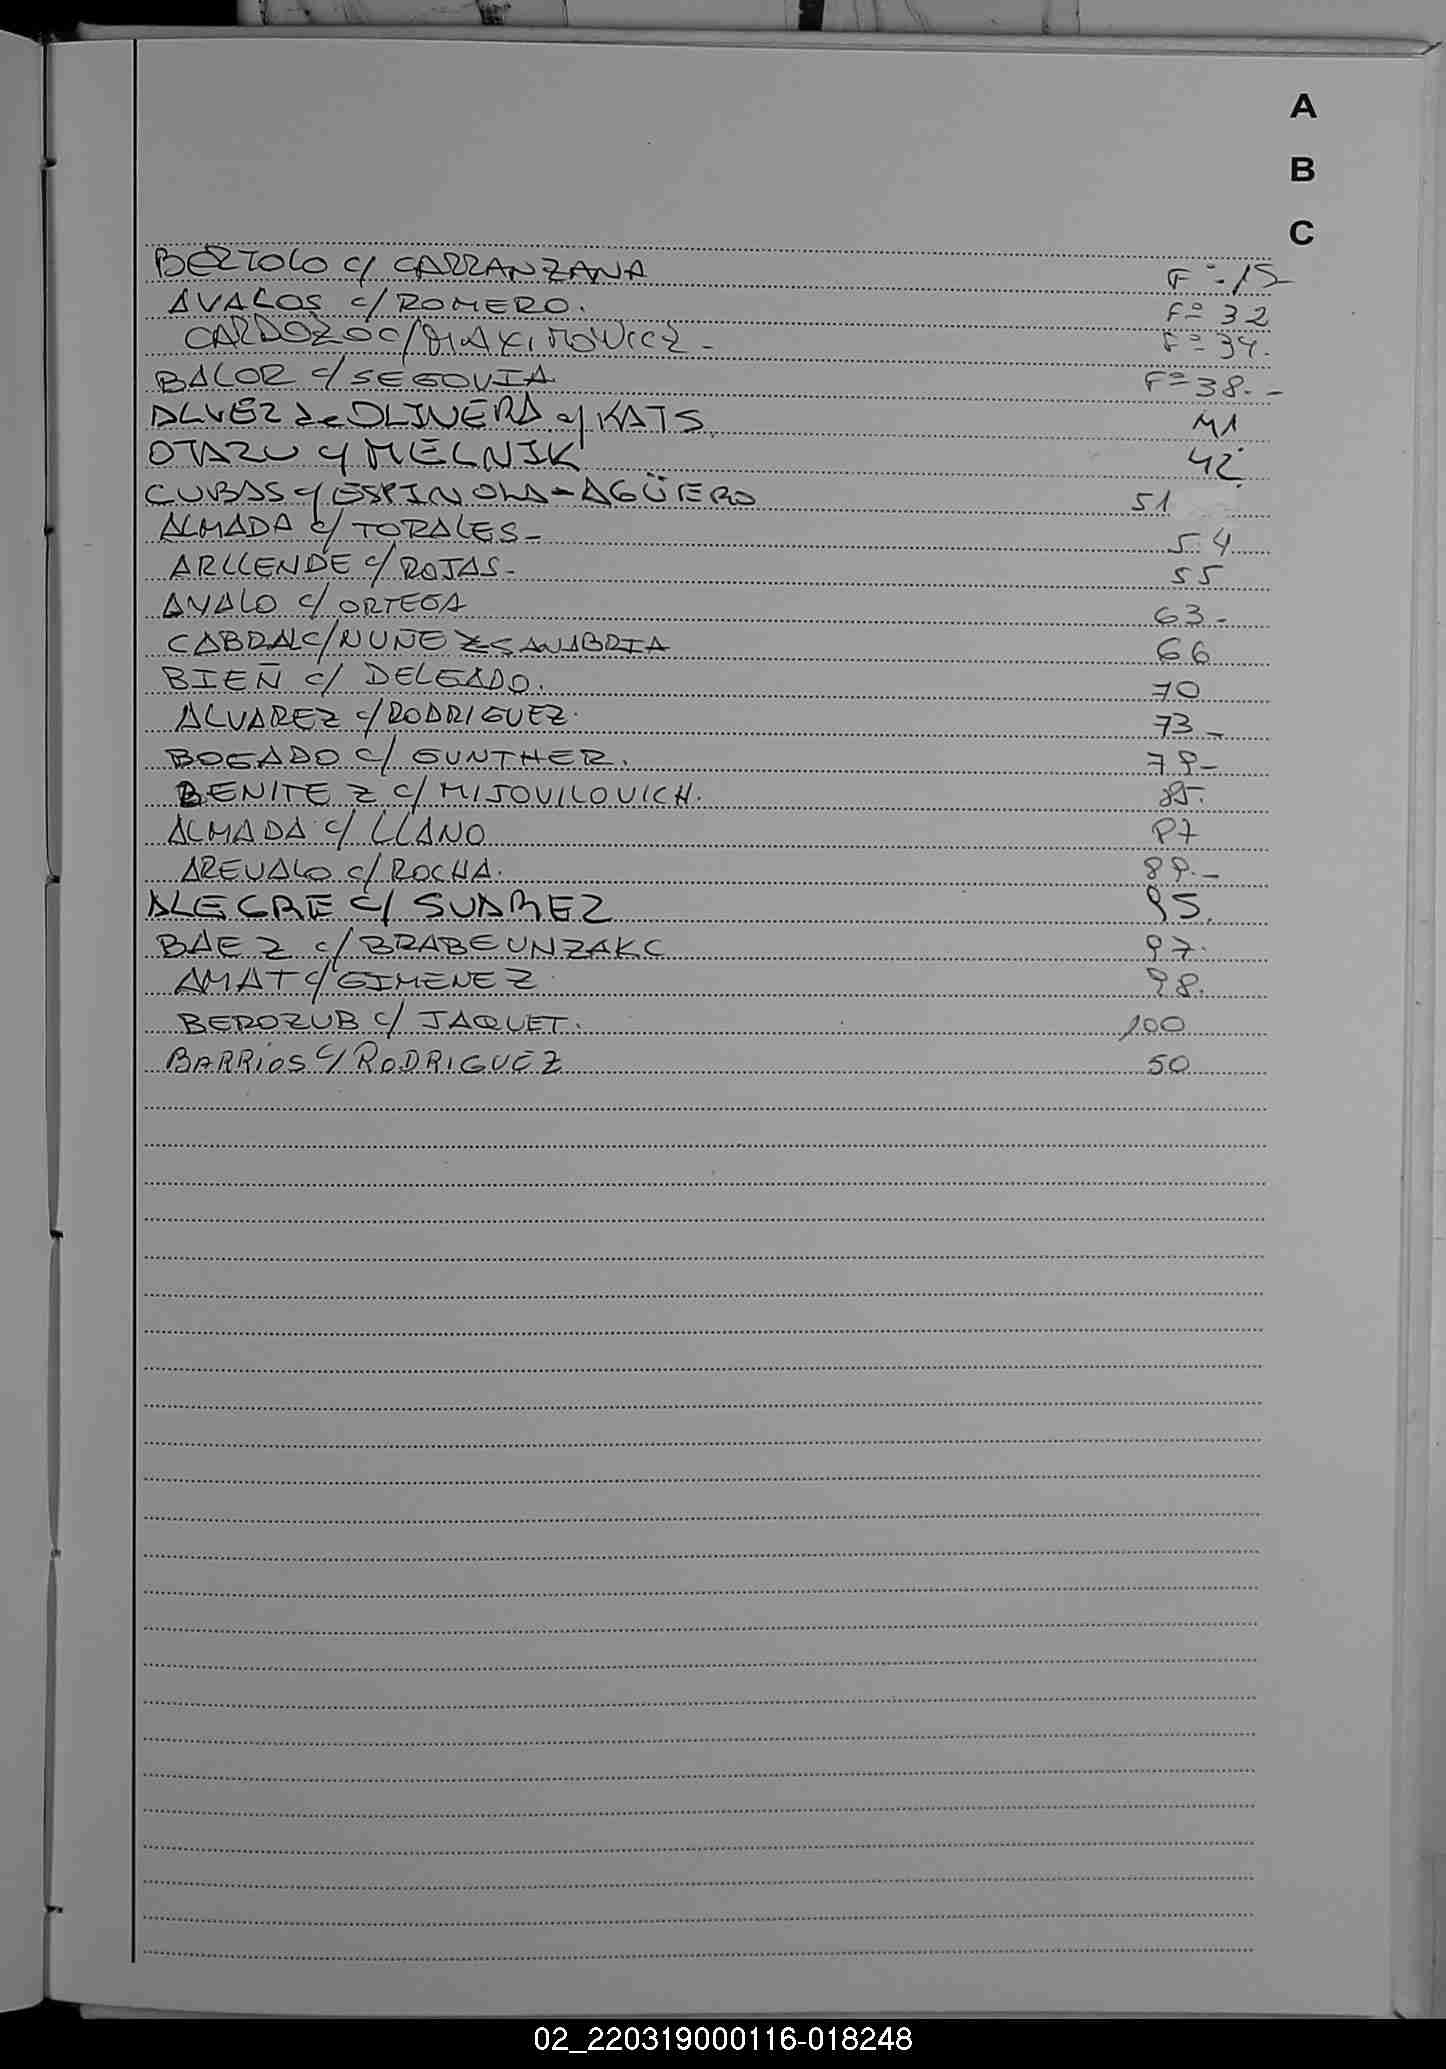 A
B
C
BERTOLO c/ CARRANZANA Fº 15
AVALOS c/ ROMERO. Fº 32
CARDOZO c/ MAXIMOWICZ - Fº 34.
BALOR c/ SEGOVIA Fº 38.-
ALVEZ de OLIVERA c/ KATS 41
OTAZU c/ MELNIK 42
CUBAS c/ ESPINOLA - AGÜERO 51
ALMADA c/ TORALES - 54
ARLLENDE c/ ROJAS - 55
AVALO c/ ORTEGA 63-
CABRAL c/ NUÑEZ SANABRIA 66
BIEÑ c/ DELGADO. 70
ALVAREZ c/ RODRIGUEZ. 73-
BOGADO c/ GUNTHER. 79-
BENITEZ c/ MIJOVILOVICH. 85.
ALMADA c/ LLANO 87
AREVALO c/ ROCHA. 89.-
ALEGRE c/ SUAREZ 95.
BAEZ c/ BRABEUNZAKC 97.
AMAT c/ GIMENEZ 98.
BEROZUB c/ JAQUET. 100
BARRIOS c/ RODRIGUEZ 50
02_220319000116-018248